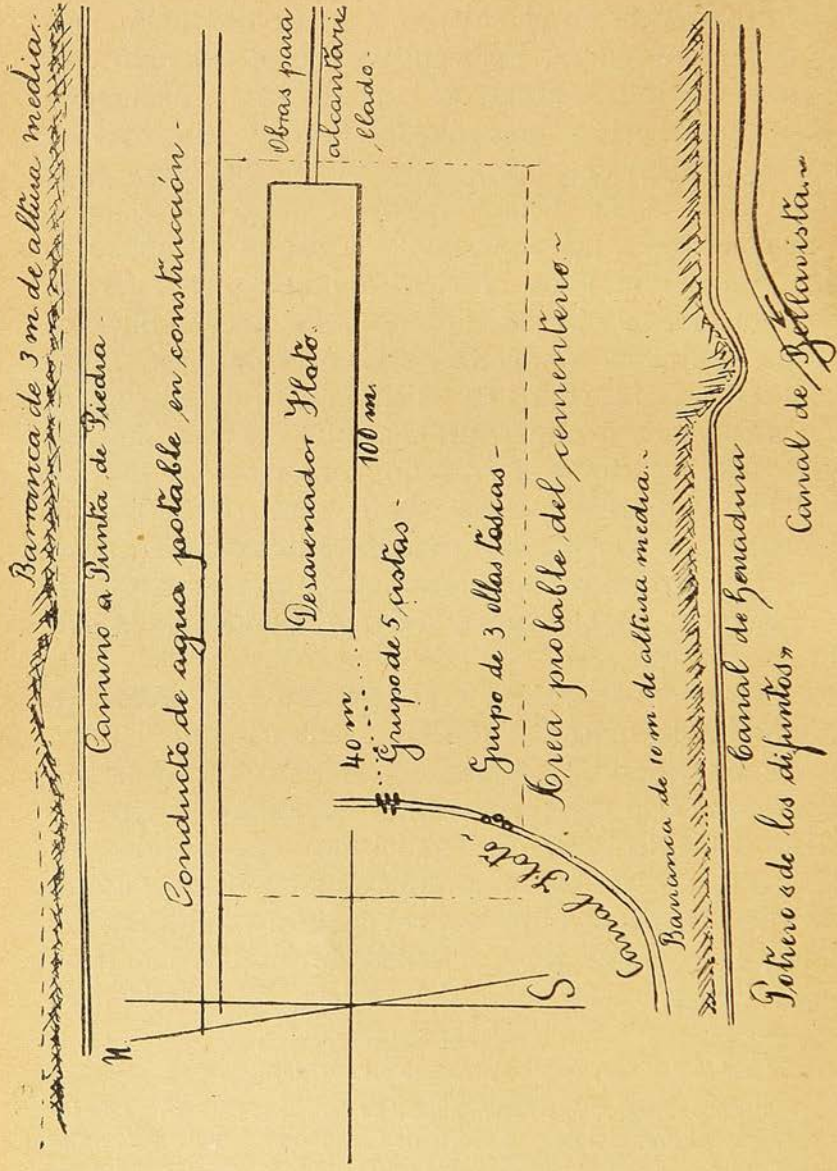 Barranca de 3 m de altura media.
Camino a Punta de Piedra.
Conducto de agua potable en construcción.
Obras para
alcantari
llado.
Desarenador Floto.
100 m.
40 m
Grupo de 5 cistas.
Grupo de 3 ollas toscas.
Area probable del cementerio.
Canal Floto.
N
S
Barranca de 10 m de altura media.
Canal de Herradura
Potrero «de los difuntos»
Canal de Bellavista.